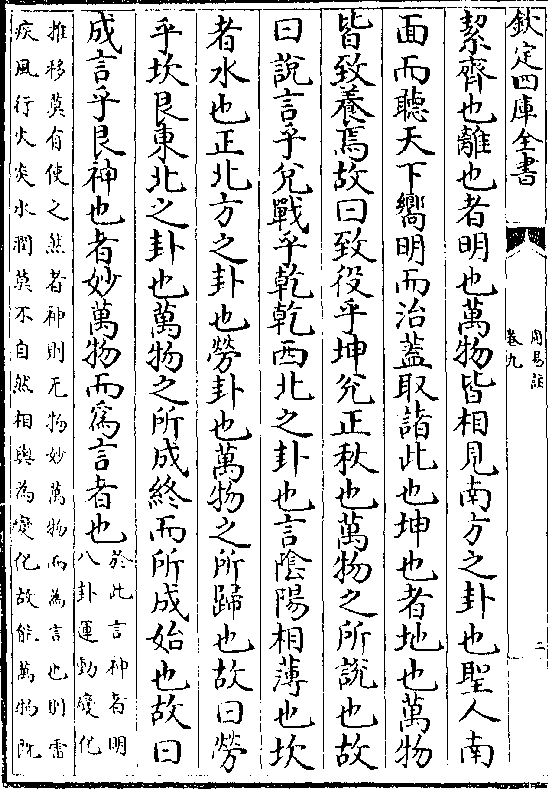 欽定四庫全書
周易註
卷九
二
絜齊也離也者明也萬物皆相見南方之卦也聖人南
面而聽天下嚮明而治蓋取諸此也坤也者地也萬物
皆致養焉故曰致役乎坤兊正秋也萬物之所說也故
曰說言乎兊戰乎乾乾西北之卦也言陰陽相薄也坎
者水也正北方之卦也勞卦也萬物之所歸也故曰勞
乎坎艮東北之卦也萬物之所成終而所成始也故曰
成言乎艮神也者妙萬物而為言者也
於此言神者明
八卦運動變化
推移莫有使之然者神則无物妙萬物而為言也則雷
疾風行火炎水潤莫不自然相與為變化故能萬物既